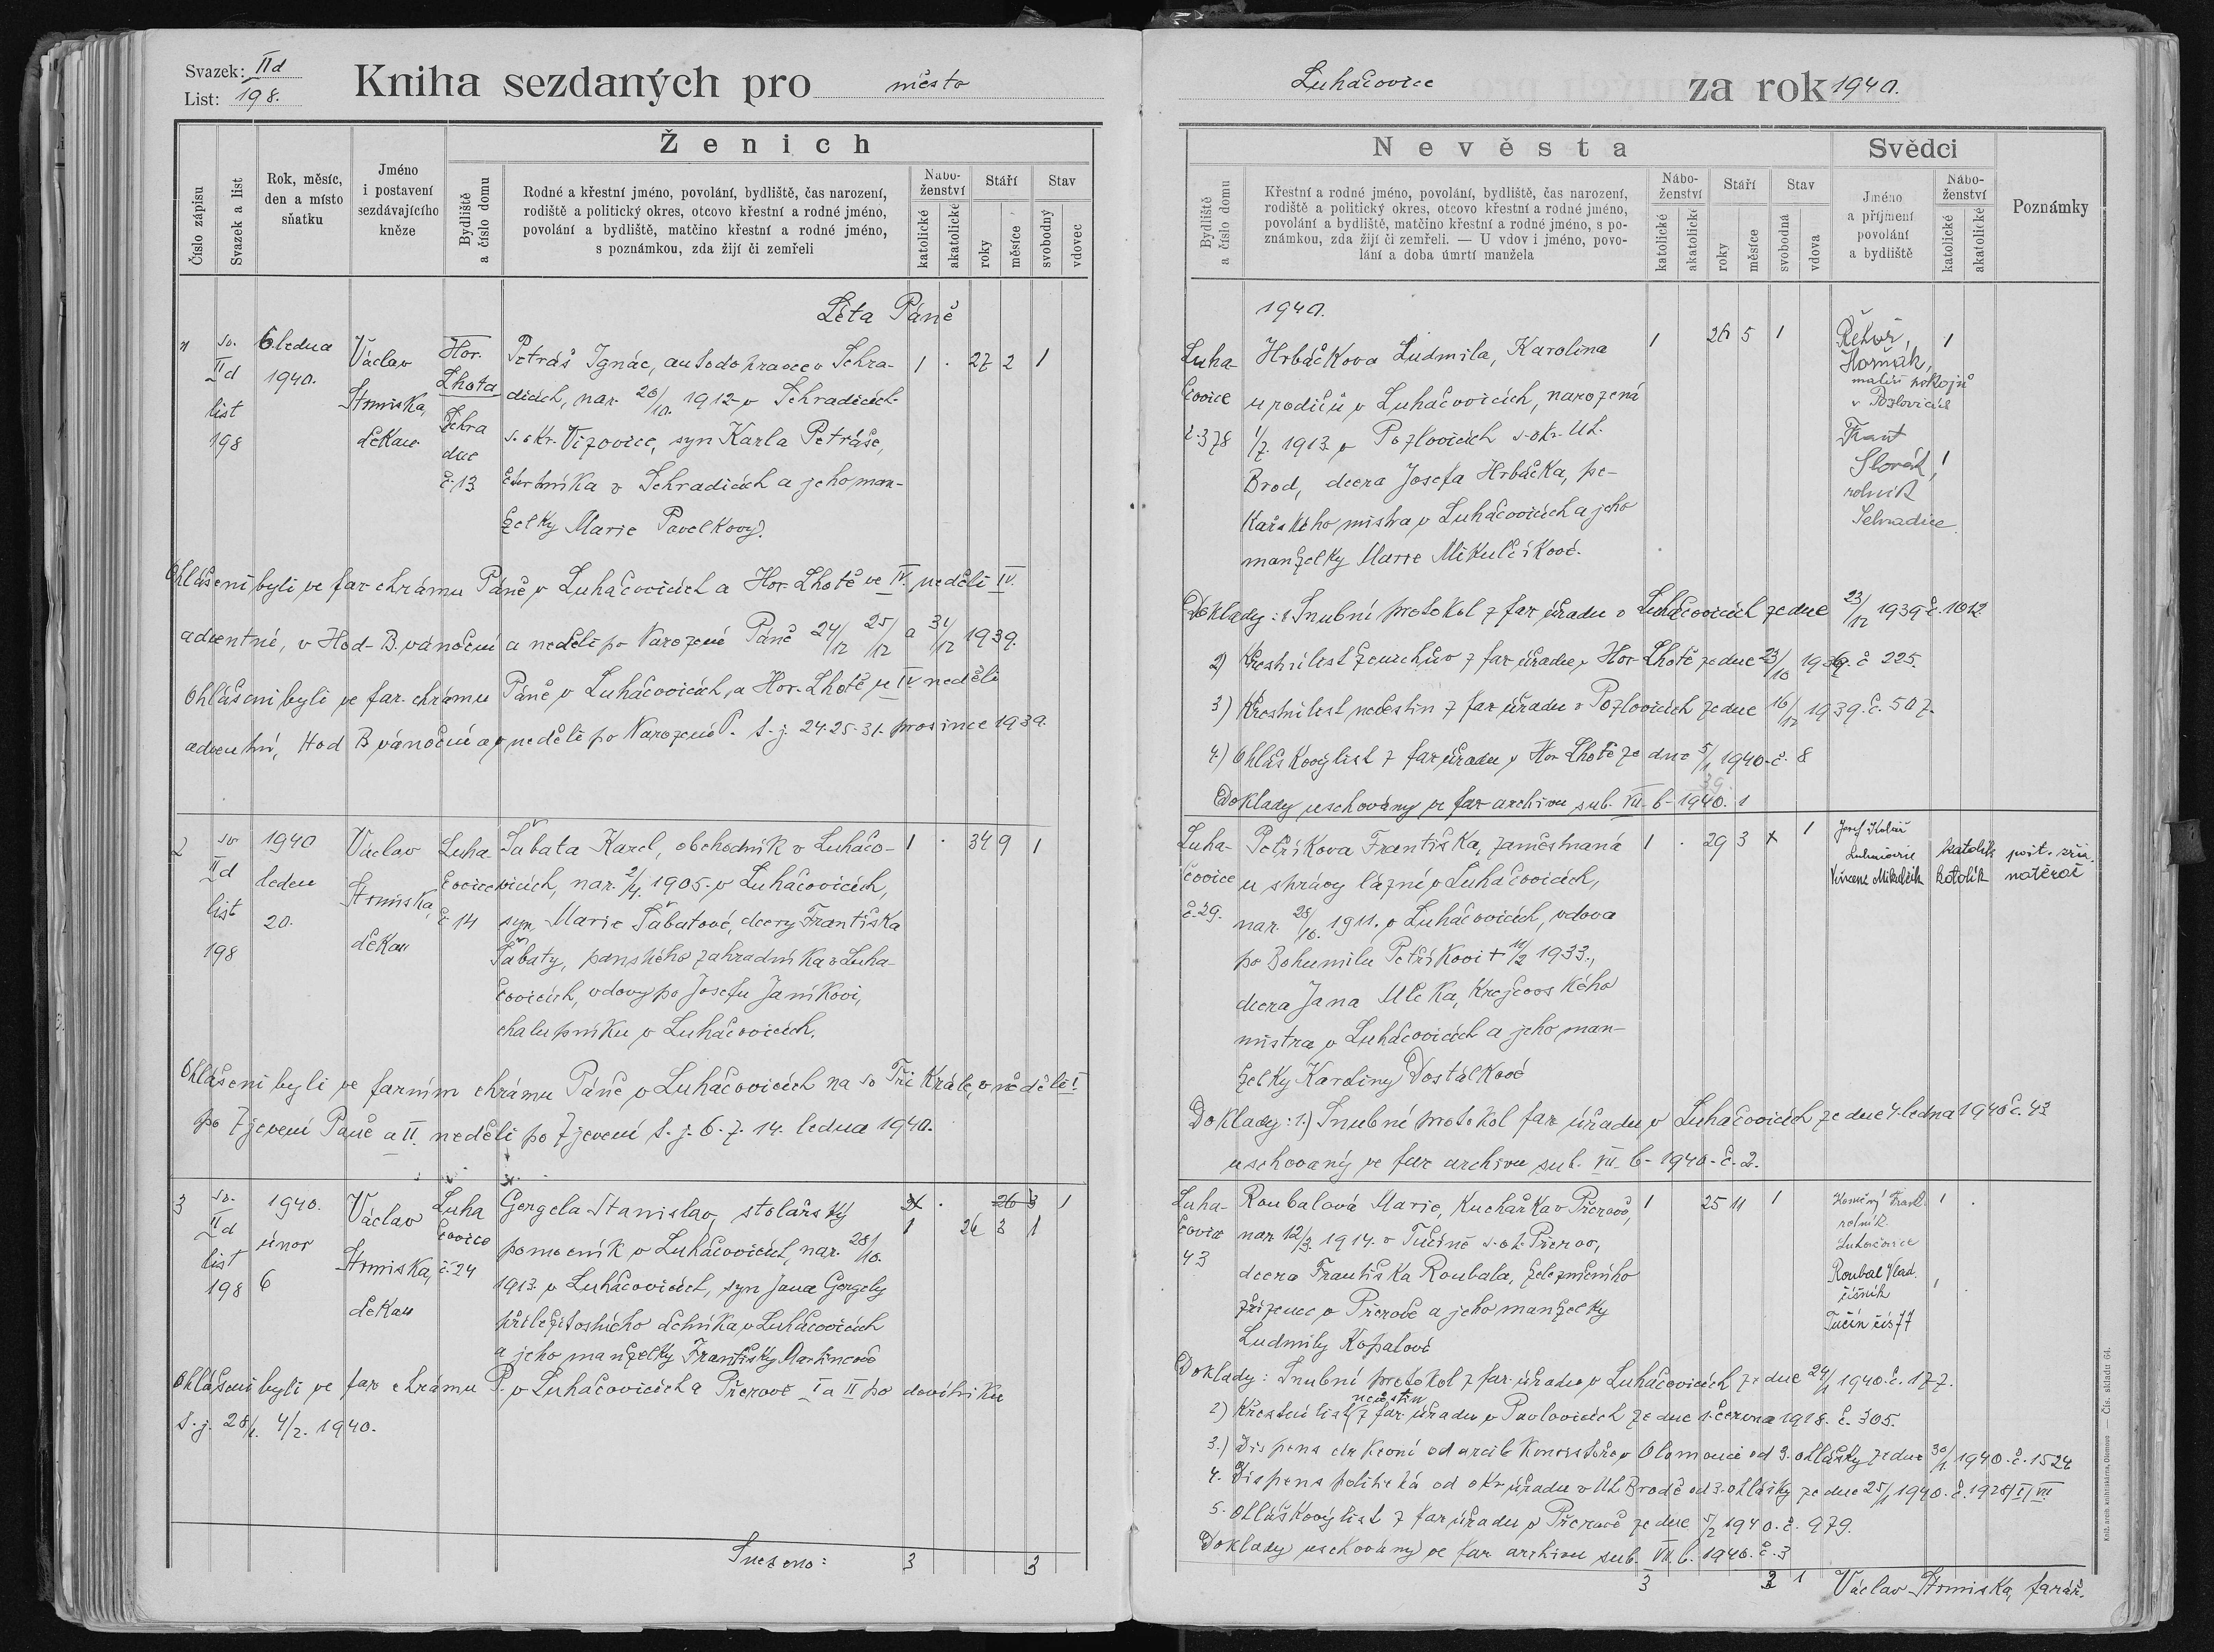 Svazek: IId
List: 198.
Kniha sezdaných pro město
Číslo zápisu
Svazek a list
Rok, měsíc,
den a místo
sňatku
Jméno
i postavení
sezdávajícího
kněze
Ženich
Bydliště
a číslo domu
Rodné a křestní jméno, povolání, bydliště, čas narození,
rodiště a politický okres, otcovo křestní a rodné jméno,
povolání a bydliště, matčino křestní a rodné jméno,
s poznámkou, zda žijí či zemřeli
Nábo-
ženství
katolické
akatolické
Stáří
roky
měsíce
Stav
svobodný
vdovec
Léta Páně
1 sv. 6 ledna Václav Hor. Petráš Ignác, autodopravce v Sehra- 1 . 27 2 1
IId 1940. Lhota dicích, nar. 26/10. 1912 v Sehradicích
list Strmiska, Sehra s. okr. Vizovice, syn Karla Petráše,
198 děkan dice
č. 13 v Sehradicích a jeho man-
želky Marie Pavelkovy.
Ohlášeni byli ve far chrámu Páně v Luhačovicích a Hor. Lhotě ve IV. neděli IV.
adventní, v Hod B. vánoční a neděli po Narození Páně 24/12 25/12 a 31/12 1939.
Ohlášeni byli ve far. chrámu Páně v Luhačovicích, a Hor. Lhotě ve IV neděli
adventní, Hod B vánoční a v neděli po Narození P. t. j. 24. 25. 31. prosince 1939.
2 sv. 1940 Václav Luha Šabata Karel, obchodník v Luhačo- 1 . 34 9 1
IId leden Strmiska, čovice vicích, nar. 2/4. 1905. v Luhačovicích,
list 20. č 14 syn Marie Šabatové, dcery Františka
198 děkan Šabaty, panského zahradníka v Luha-
čovicích, vdovy po Josefu Janíkovi,
chalupníku v Luhačovicích.
Ohlášeni byli ve farním chrámu Páně v Luhačovicích na sv Tři Krále, v neděli I
po Zjevení Páně a II. neděli po Zjevení t. j. 6. 7. 14. ledna 1940.
3 sv. 1940. Václav Luha Gergela Stanislav, stolařský . 26 3 1
IId únor čovice pomocník v Luhačovicích, nar. 28/10. 1 26 3 1
list Strmiska, č. 24 1913. v Luhačovicích, syn Jana Gergely
198 6 děkan příležitostného dělníka v Luhačovicích
a jeho manželky Františky Martincové
Ohlášeni byli ve far chrámu P. v Luhačovicích a Přerově I a II po devítníku
t. j. 28/1. 4/2. 1940.
Sneseno: 3 3
Luhačovice za rok 1940.
Nevěsta
Bydliště
a číslo domu
Křestní a rodné jméno, povolání, bydliště, čas narození,
rodiště a politický okres, otcovo křestní a rodné jméno,
povolání a bydliště, matčino křestní a rodné jméno, s po-
známkou, zda žijí či zemřeli. — U vdov i jméno, povo-
lání a doba úmrtí manžela
Nábo-
ženství
katolické
akatolické
Stáří
roky
měsíce
Stav
svobodná
vdova
Svědci
Jméno
a příjmení
povolání
a bydliště
Nábo-
ženství
katolické
akatolické
Poznámky
1940.
Luha- Hrbáčkova Ludmila, Karolina 1 26 5 1 Řehoř, 1
čovice u rodičů v Luhačovicích, narozená Horňák, malíř pokojů v Pozlovicích
č. 378 1/7. 1913. v Pozlovicích s. okr. Uh. Frant
Brod, dcera Josefa Hrbáčka, pe- Slovák, 1
kařského mistra v Luhačovicích a jeho rolník
manželky Marie Mikulčíkové. Sehradice
Doklady: 1 Snubní protokol z far úřadu v Luhačovicích ze dne 23/12 1939 č. 1012
2) Křestní list ženichův z far úřadu v Hor Lhotě ze dne 23/10 1939. č 225.
3) Křestní list nevěstin z far úřadu v Pozlovicích ze dne 16/12 1939. č. 507.
4) Ohláškový list z far úřadu v Hor Lhotě ze dne 5/1 1940. č. 8
39.
Doklady uschovány ve far archivu sub. VII. b - 1940. 1
Luha- Petříkova Františka, zaměstnaná 1 . 29 3 x 1 Josef Kolář
čovice u správy lázní v Luhačovicích, Luhačovice katolík
č. 29. nar. 28/10. 1911. v Luhačovicích, vdova Vincenc Mikulčík katolík
po Bohumilu Petříkovi + 11/2 1933.,
dcera Jana Mlčka, krejčovského
mistra v Luhačovicích a jeho man-
želky Karoliny Dostálkové
Doklady: 1.) Snubní protokol far úřadu v Luhačovicích ze dne 4. ledna 1940 č. 43
uschovaný ve far archivu sub. VII. b - 1940. č. 2.
Luha- Roubalová Marie, kuchařka v Přerově, 1 25 11 1 Frant. 1 .
čovice nar 12/3. 1914. v Tučíně s. ok. Přerov, rolník
43 dcera Františka Roubala, železničního Luhačovice
zřízence v Přerově a jeho manželky Roubal Vlad. 1
Ludmily Kopalové číšník
Tučín čís 77
Doklady: Snubní protokol z far úřadu v Luhačovicích ze dne 24/1 1940. č. 177.
2) Křestní list nevěstin z far. úřadu v Pavlovicích ze dne 1. června 1918. č. 305.
3.) Dispens církevní od arcib konsistoře v Olomouci od 3. ohlášky ze dne 30/1. 1940. č. 1524
4. Dispens politická od okr úřadu v Uh. Brodě od 3. ohlášky ze dne 25/1 1940. č. 1928/I/VII
5. Ohláškový list z far úřadu v Přerově ze dne 5/2 1940. č. 979.
Doklady uschovány ve far archivu sub. VII. b. 1940. č. 3
3 2 1 Václav Strmiska, farář.
Knih. arch. knihtiskárna, Olomouc — Čís. skladu 64.